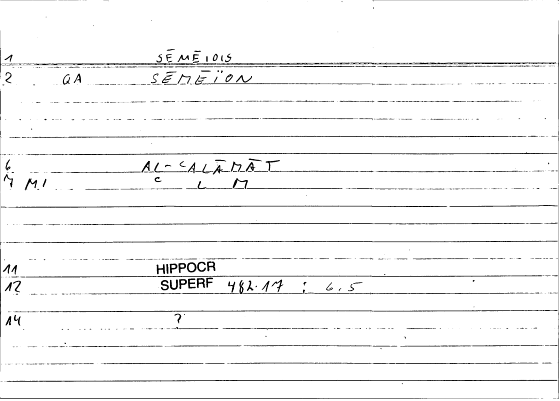 1 SĒMĒIOIS
2 QA SĒMĒÏON
6 AL-ᶜALĀMĀT
7 MI ᶜ L M
11 HIPPOCR
12 SUPERF 482.17 : 6.5
14 ?